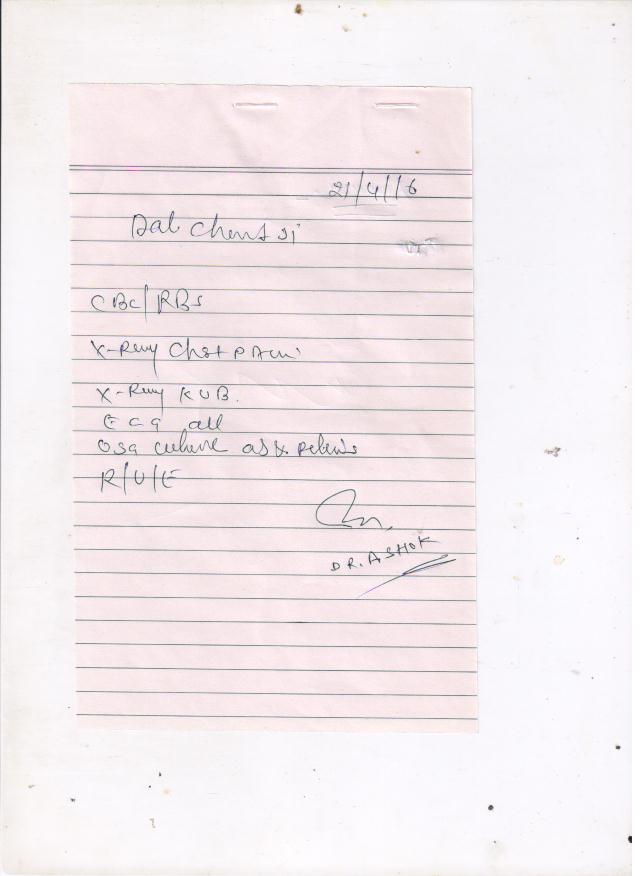 21/4/16
Dal Chand Ji
CBC/RBS
X-Ray Chest PA
X-Ray KUB.
ECG all
USG whole abd. pelvis
R/U/E
DR. ASHOK